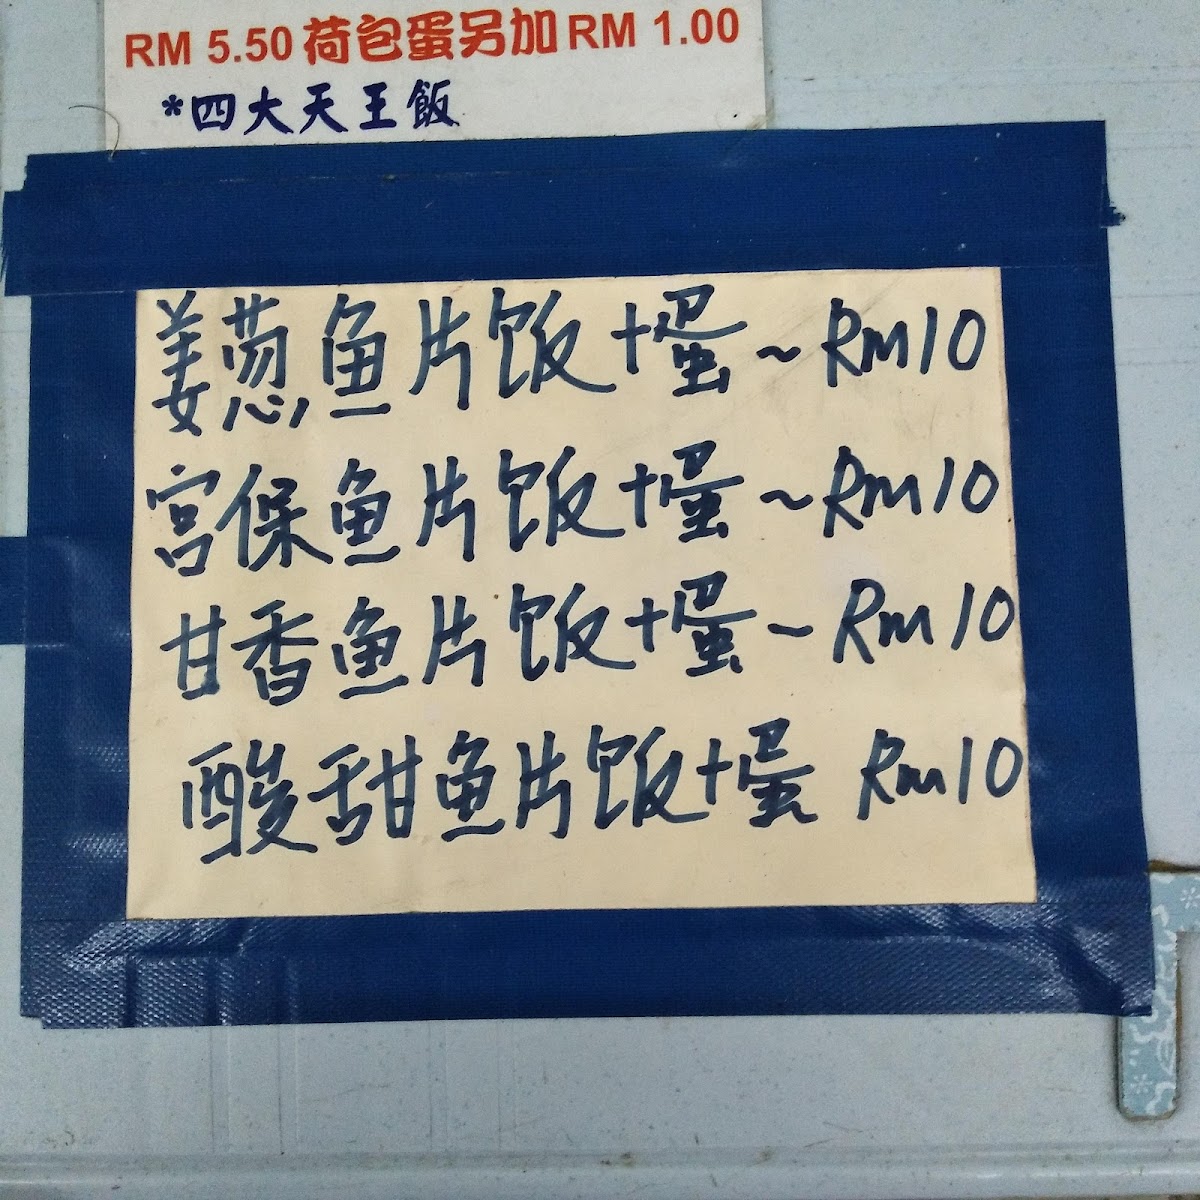 RM 5.50 荷包蛋另加 RM 1.00
*四大天王飯
姜葱鱼片饭+蛋~Rm10
宫保鱼片饭+蛋~Rm10
甘香鱼片饭+蛋~Rm10
酸甜鱼片饭+蛋 Rm10